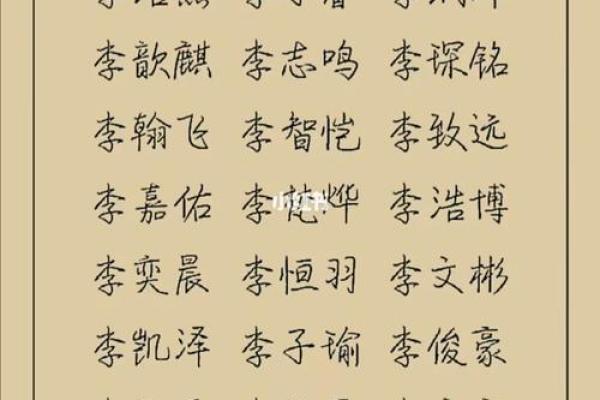 李歆麒 李志鸣 李琛铭
李翰飞 李智恺 李致远
李嘉佑 李梵烨 李浩博
小红书
李奕晨 李恒羽 李文彬
李凯泽 李子瑜 李俊豪